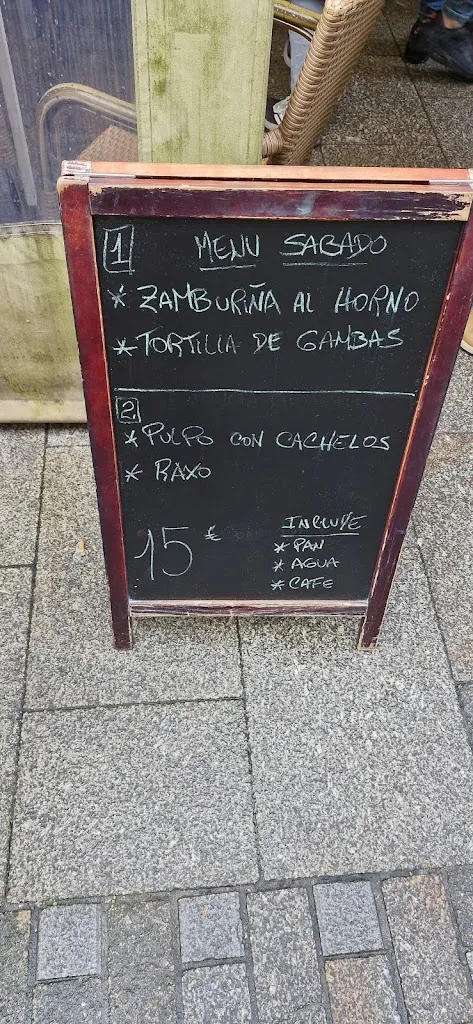 1 MENU SABADO
* ZAMBURIÑA AL HORNO
* TORTILLA DE GAMBAS
2
* PULPO CON CACHELOS
* RAXO
15 €
INCLUYE
* PAN
* AGUA
* CAFE